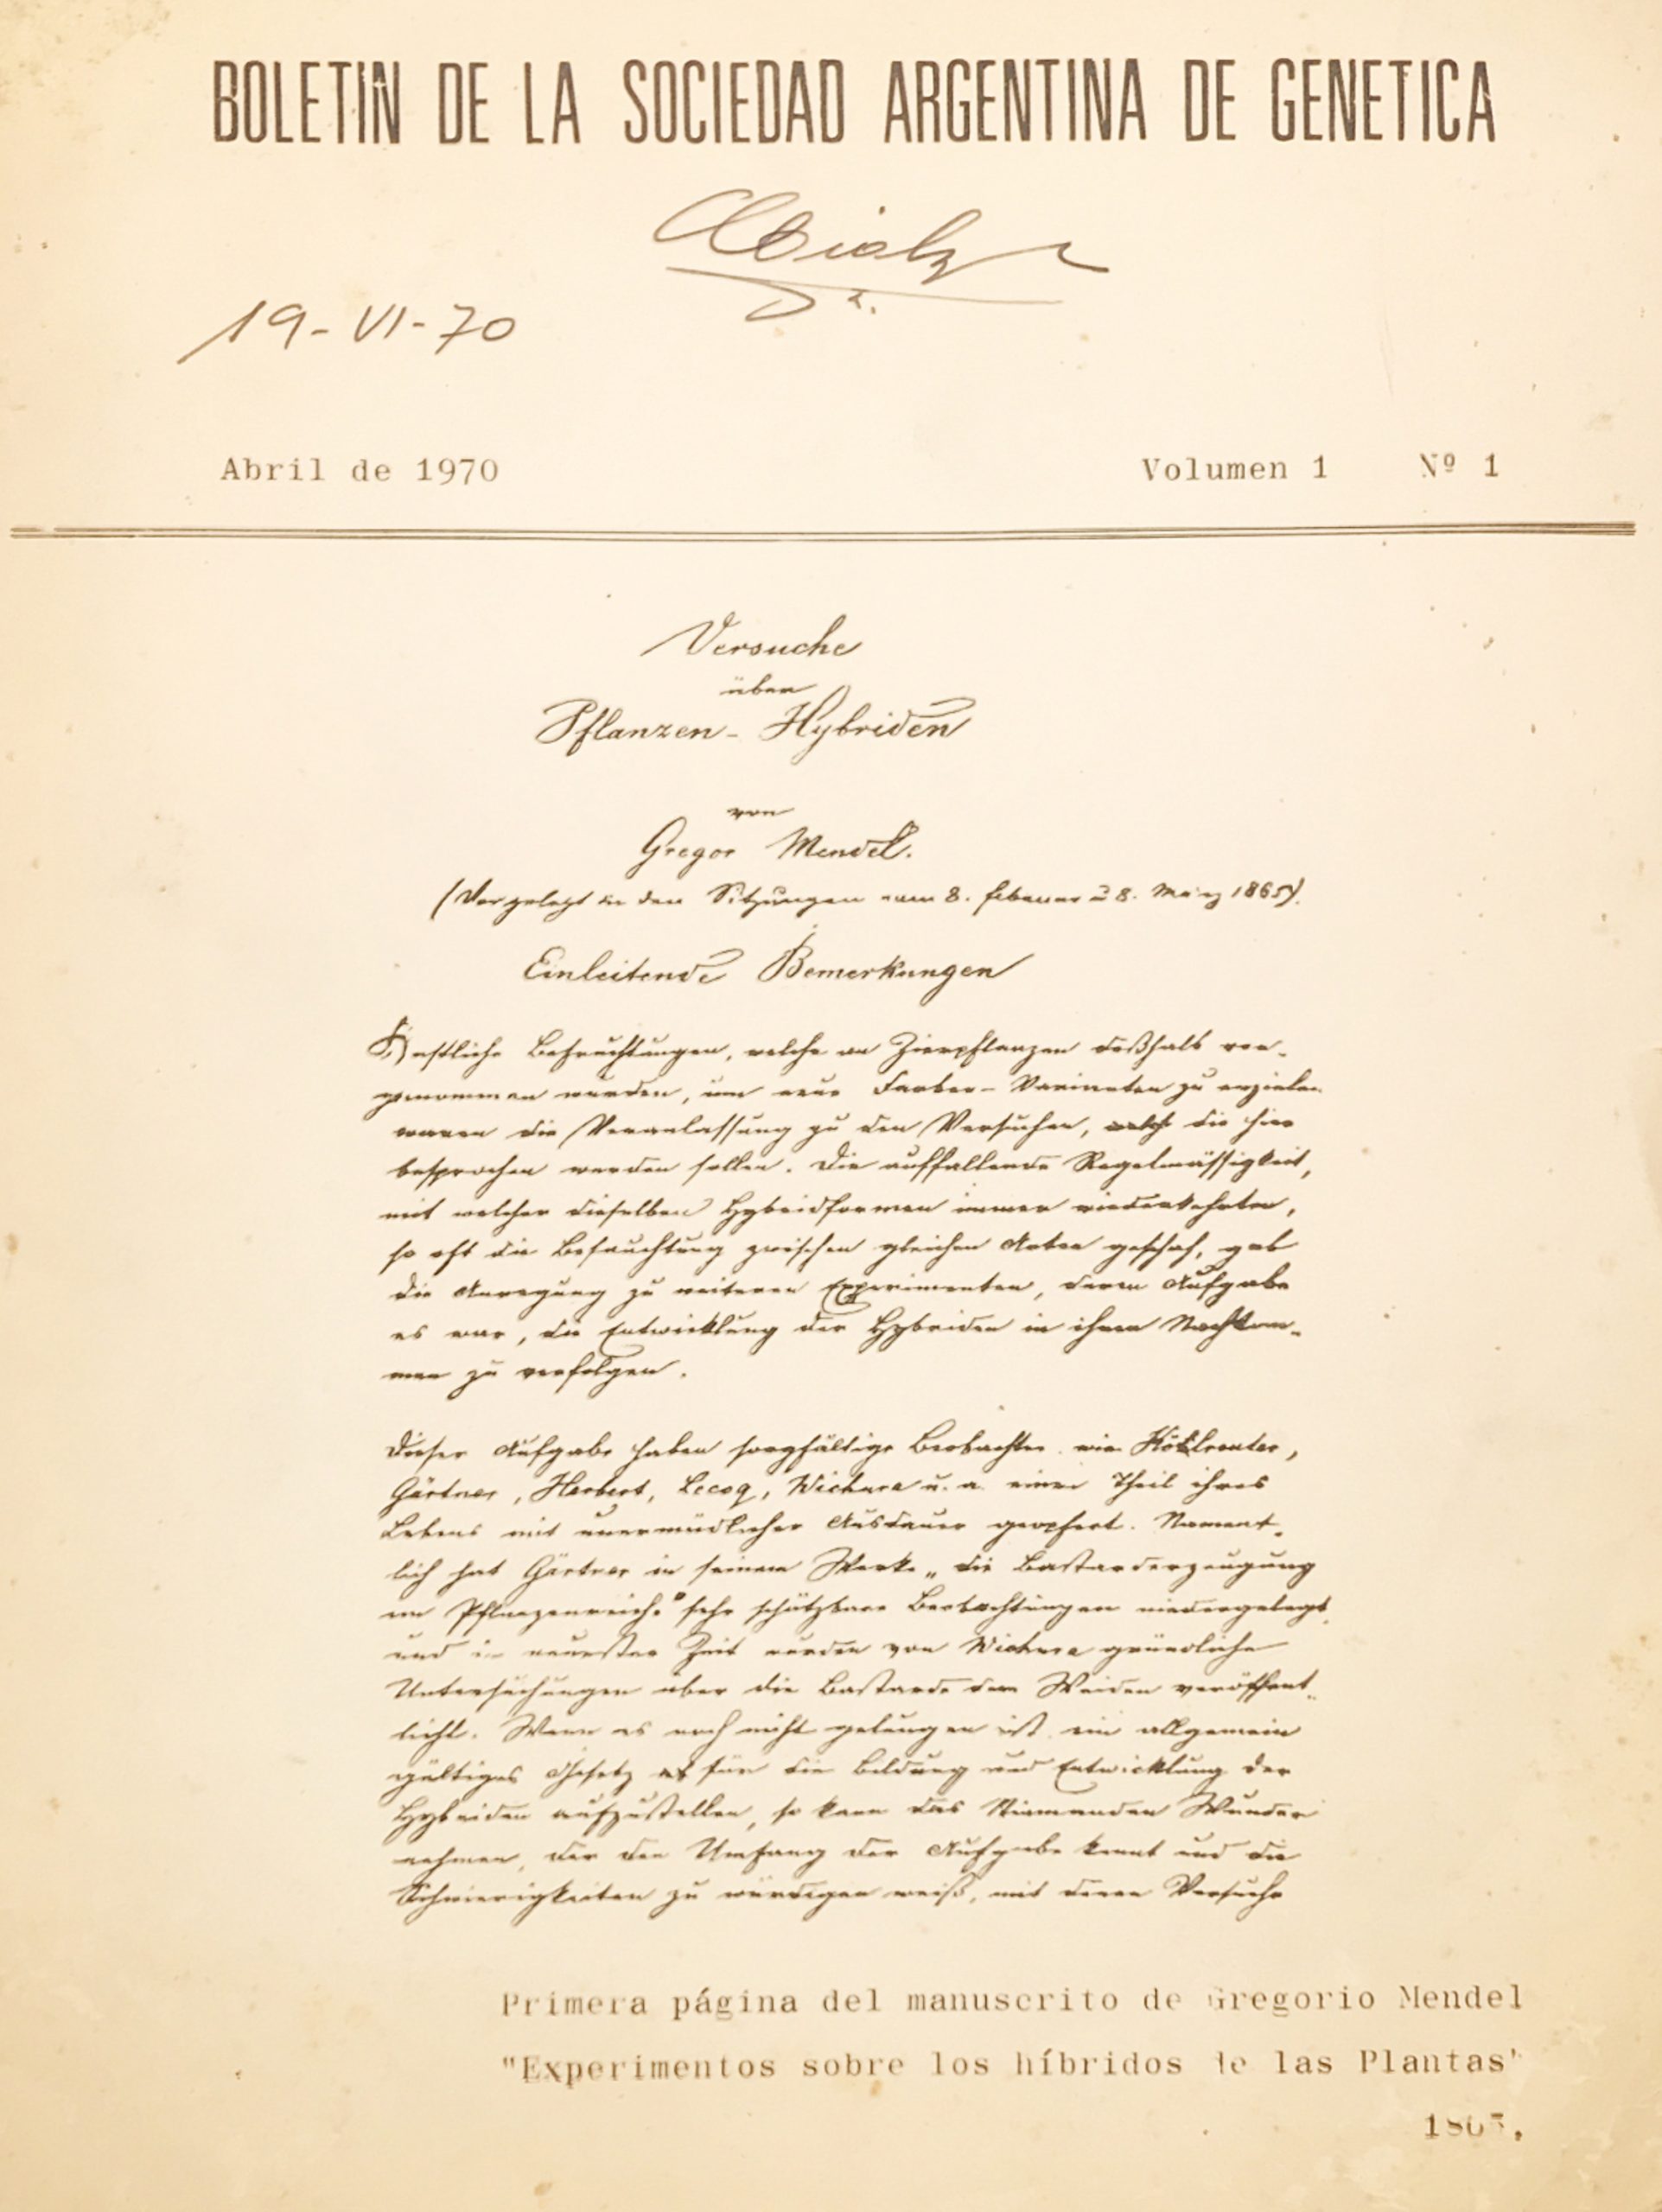 BOLETIN DE LA SOCIEDAD ARGENTINA DE GENETICA
19-VI-70
Abril de 1970 Volumen 1 Nº 1
Versuche
über
Pflanzen-Hybriden
von
Gregor Mendel.
(Vorgelegt in den Sitzungen vom 8. Februar u 8. März 1865).
Einleitende Bemerkungen
Künstliche Befruchtungen, welche an Zierpflanzen deßhalb vor-
genommen wurden, um neue Farben-Varianten zu erzielen
waren die Veranlassung zu den Versuchen, die hier
besprochen werden sollen. Die auffallende Regelmässigkeit,
mit welcher dieselben Hybridformen immer wiederkehrten,
so oft die Befruchtung zwischen gleichen Arten geschah, gab
die Anregung zu weiteren Experimenten, deren Aufgabe
es war, die Entwicklung der Hybriden in ihren Nachkom-
men zu verfolgen.
Dieser Aufgabe haben sorgfältige Beobachter wie Kölreuter,
Gärtner, Herbert, Lecoq, Wichura u. a. einen Theil ihres
Lebens mit unermüdlicher Ausdauer geopfert. Nament-
lich hat Gärtner in seinem Werke „die Bastarderzeugung
im Pflanzenreiche" sehr schätzbare Beobachtungen niedergelegt
und in neuester Zeit wurden von Wichura gründliche
Untersuchungen über die Bastarde der Weiden veröffent-
licht. Wenn es noch nicht gelungen ist, ein allgemein
gültiges Gesetz für die Bildung und Entwicklung der
Hybriden aufzustellen, so kann das Niemanden Wunder
nehmen, der den Umfang der Aufgabe kennt und die
Schwierigkeiten zu würdigen weiß, mit denen Versuche
Primera página del manuscrito de Gregorio Mendel
"Experimentos sobre los híbridos de las Plantas"
1865.